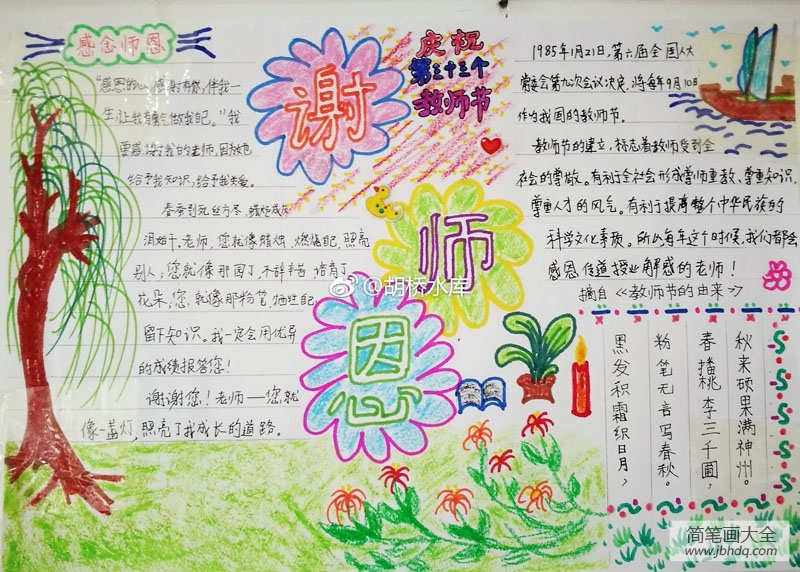 感念师恩
"感恩的心,感谢有你,伴我一
生,让我有勇气做我自己。"我
要感谢我的老师,因为她
给予我知识,给予我关爱。
春蚕到死丝方尽,蜡炬成灰
泪始干。老师,您就像腊烛,燃烧自己,照亮
别人;您就像那园丁,不辞辛苦,培育了
花朵;您,就像那粉笔,牺牲自己
留下知识。我一定会用优异
的成绩报答您!
谢谢您!老师——您就
像一盏灯,照亮了我成长的道路。
谢
师
恩
庆祝
第三十三个
教师节
1985年1月21日,第六届全国人大
常委会第九次会议决定,将每年9月10日
作为我国的教师节。
教师节的建立,标志着教师受到全
社会的尊敬。有利于全社会形成尊师重教、尊重知识,
尊重人才的风气。有利于提高整个中华民族的
科学文化素质。所以每年这个时候,我们都会
感恩传道授业解惑的老师!
摘自《教师节的由来》
黑发积霜织日月,
粉笔无言写春秋。
春播桃李三千圃,
秋来硕果满神州。
@胡桥水库
简笔画大全
www.jbhdq.com